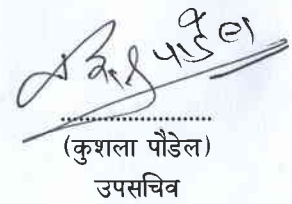 (कुशला पौडेल)
उपसचिव